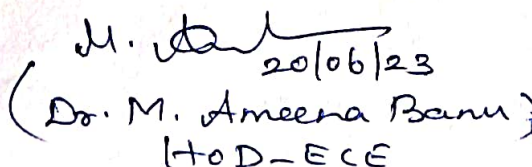 M.
20/06/23
(Dr. M. Ameena Banu)
HoD-ECE